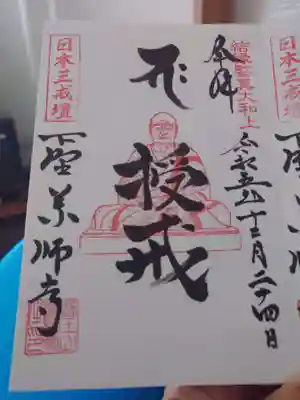 日本三戒壇
奉拝
鑑真大和上
令和五年十二月二十四日
形
授戒
日本三戒壇
下野薬師寺